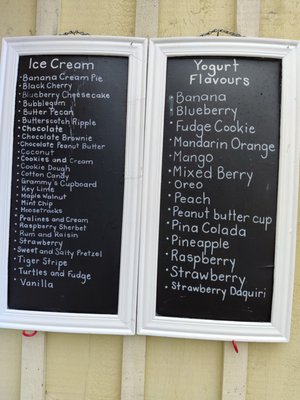 Ice Cream
• Banana Cream Pie
• Black Cherry
• Blueberry Cheesecake
• Bubblegum
• Butter Pecan
• Butterscotch Ripple
• Chocolate
• Chocolate Brownie
• Chocolate Peanut Butter
• Coconut
• Cookies and Cream
• Cookie Dough
• Cotton Candy
• Grammy's Cupboard
• Key Lime
• Maple Walnut
• Mint Chip
• Moosetracks
• Pralines and Cream
• Raspberry Sherbet
• Rum and Raisin
• Strawberry
• Sweet and Salty Pretzel
• Tiger Stripe
• Turtles and Fudge
• Vanilla
Yogurt
Flavours
• Banana
• Blueberry
• Fudge Cookie
• Mandarin Orange
• Mango
• Mixed Berry
• Oreo
• Peach
• Peanut butter cup
• Pina Colada
• Pineapple
• Raspberry
• Strawberry
• Strawberry Daquiri